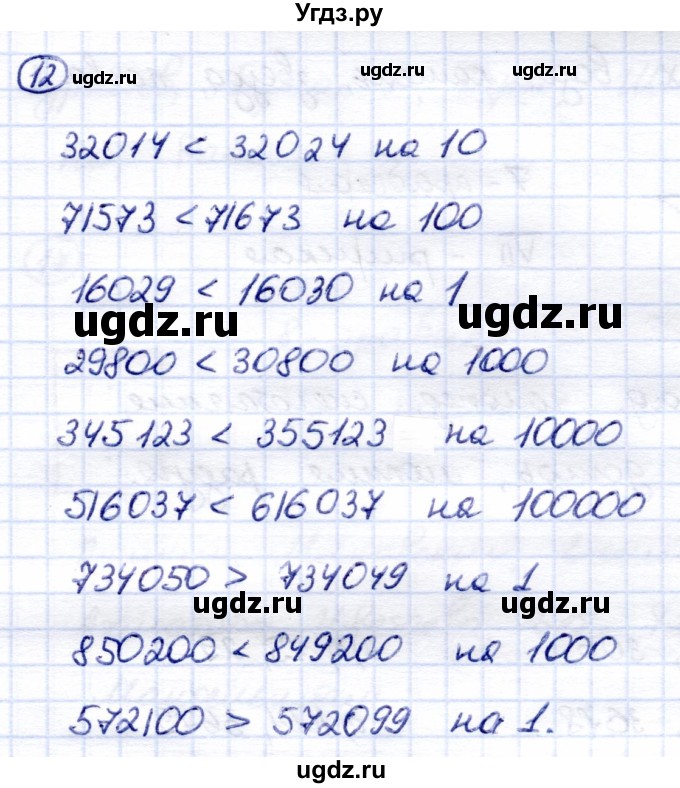 Угдз.ру
12 ugdz.ru ugdz.ru ugdz.ru
32014 < 32024 на 10
71573 < 71673 на 100
16029 < 16030 на 1
ugdz.ru ugdz.ru
29800 < 30800 на 1000
345123 < 355123 на 10000
516037 < 616037 на 100000
734050 > 734049 на 1
ugdz.ru ugdz.ru
850200 < 849200 на 1000
572100 > 572099 на 1.
ugdz.ru